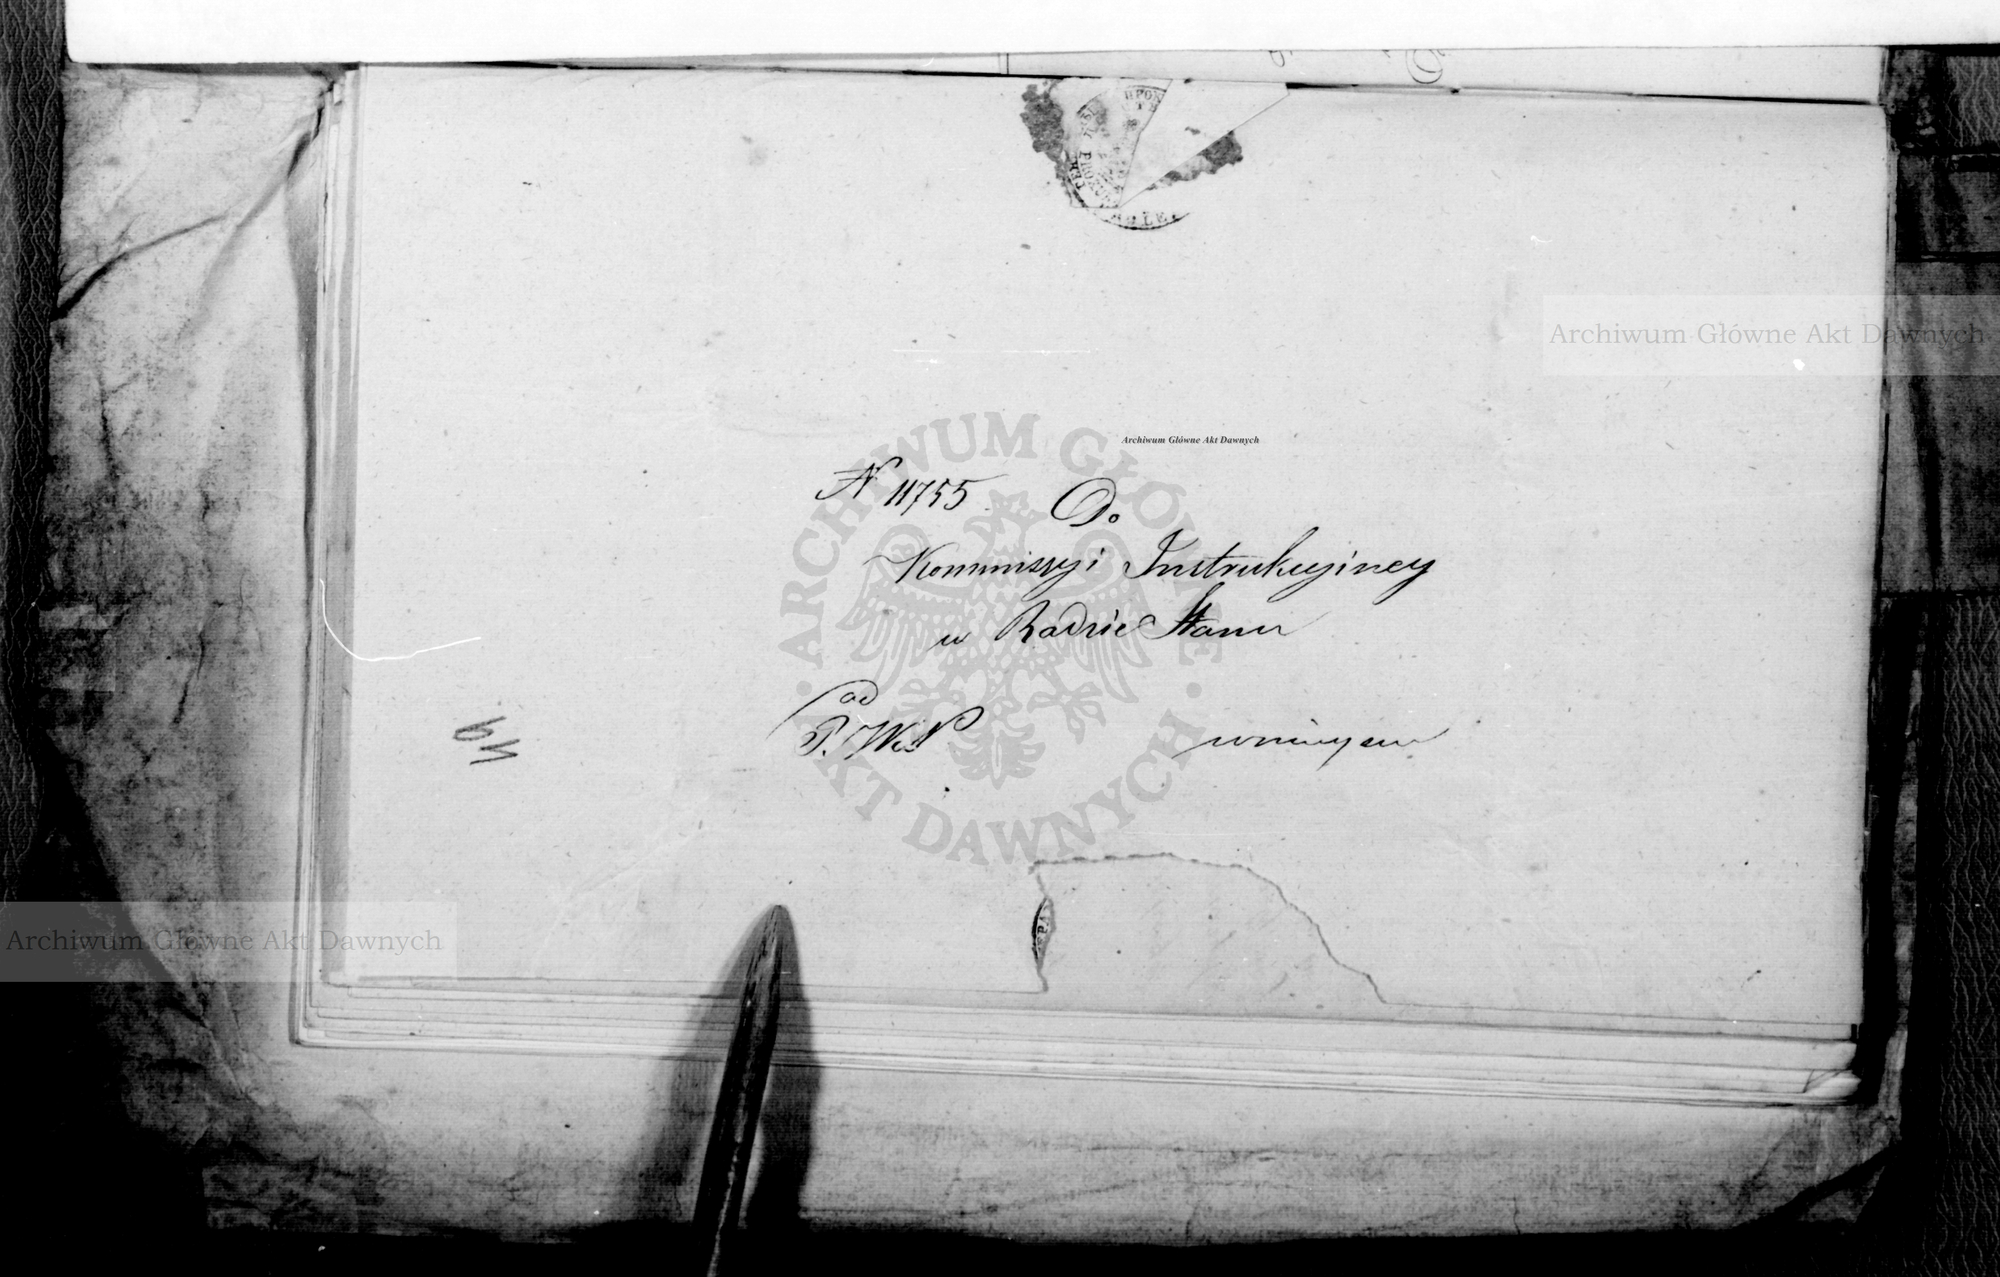 Archiwum Główne Akt Dawnych
Archiwum Główne Akt Dawnych
N 11755 Do
Kommissyi Instrukcyiney
w Radzie Stanu
od
w mieyscu
49
ARCHIWUM GŁÓWNE
AKT DAWNYCH
Archiwum Główne Akt Dawnych